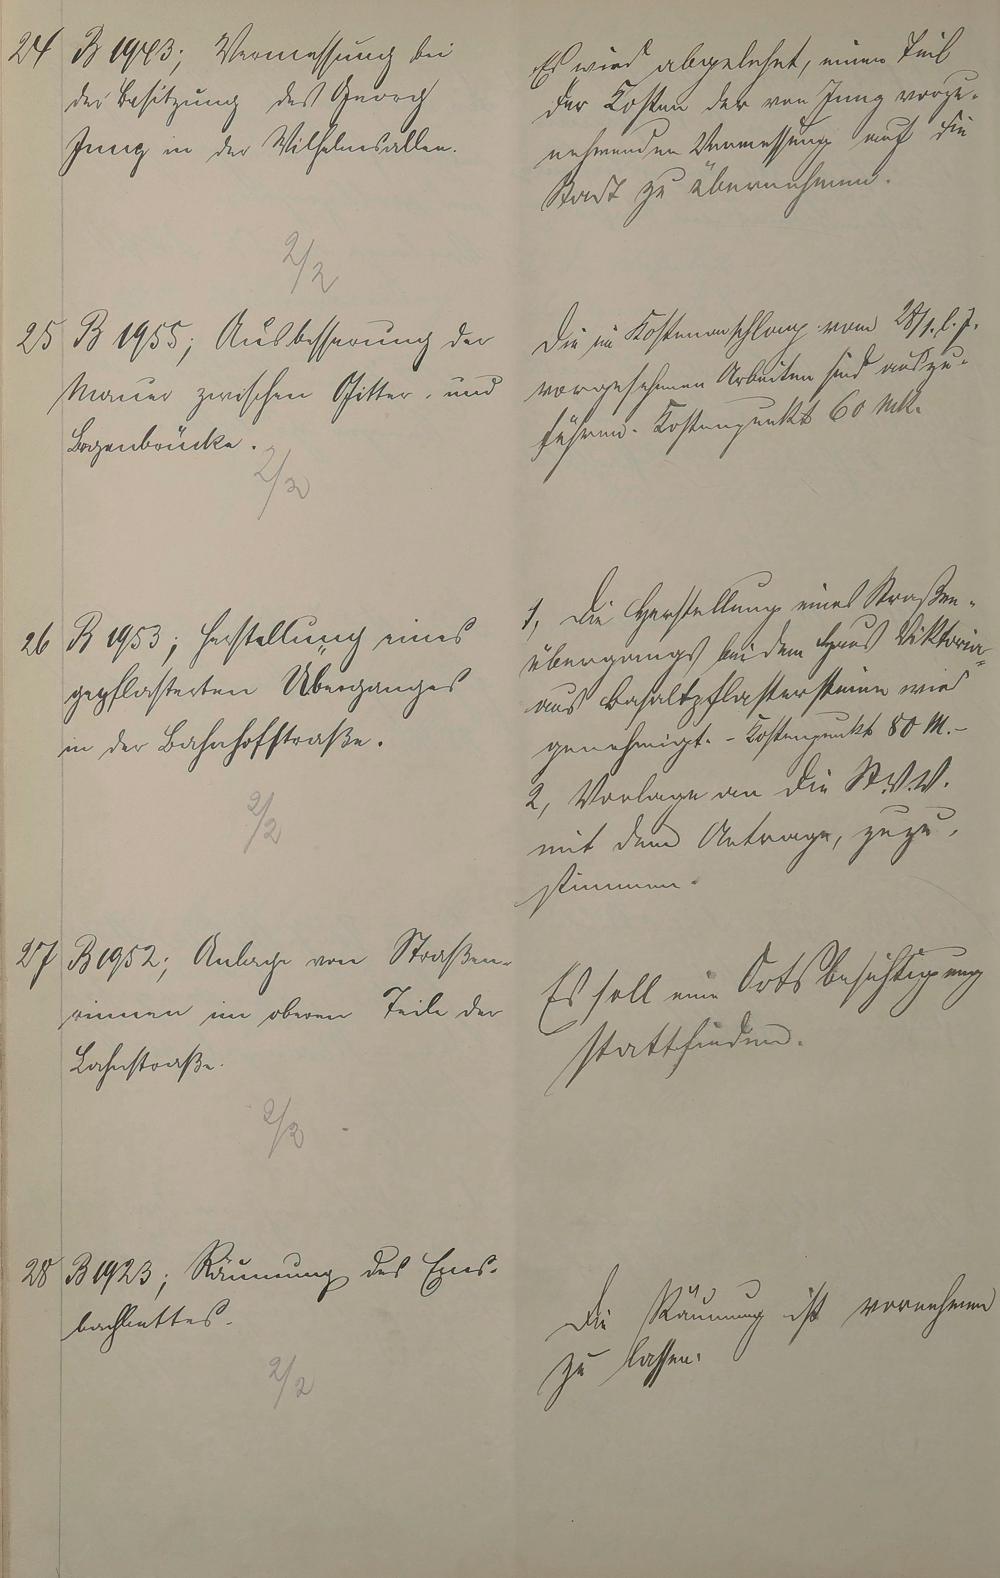 24 B 1943; Vermessung bei
der Besitzung des Georg
Jung in der Wilhelmsallee.
2/2
Es wird abgelehnt, einen Teil
der Kosten der von Jung vorzu-
nehmenden Vermessung auf die
Stadt zu übernehmen.
25 B 1955; Ausbesserung der
Mauer zwischen Gitter- und
Bogenbrücke.
2/2
Die im Kostenanschlag vom 28/1. l. J.
vorgesehenen Arbeiten sind auszu-
führen. Kostenpunkt 60 Mk.
26 B 1953; Herstellung eines
gepflasterten Überganges
in der Bahnhofstraße.
2/2
1, Die Herstellung eines Straßen-
übergangs bei dem Haus Viktoria
aus Basaltpflastersteinen wird
genehmigt. - Kostenpunkt 80 M. -
2, Vorlage an die St.V.V.
mit dem Antrage, zuzu-
stimmen.
27 B 1952; Anlage von Straßen-
rinnen im oberen Teile der
Lahnstraße.
2/2
Es soll eine Ortsbesichtigung
stattfinden.
28 B 1923; Räumung des Ems-
bachbettes.
2/2
Die Räumung ist vornehmen
zu lassen.